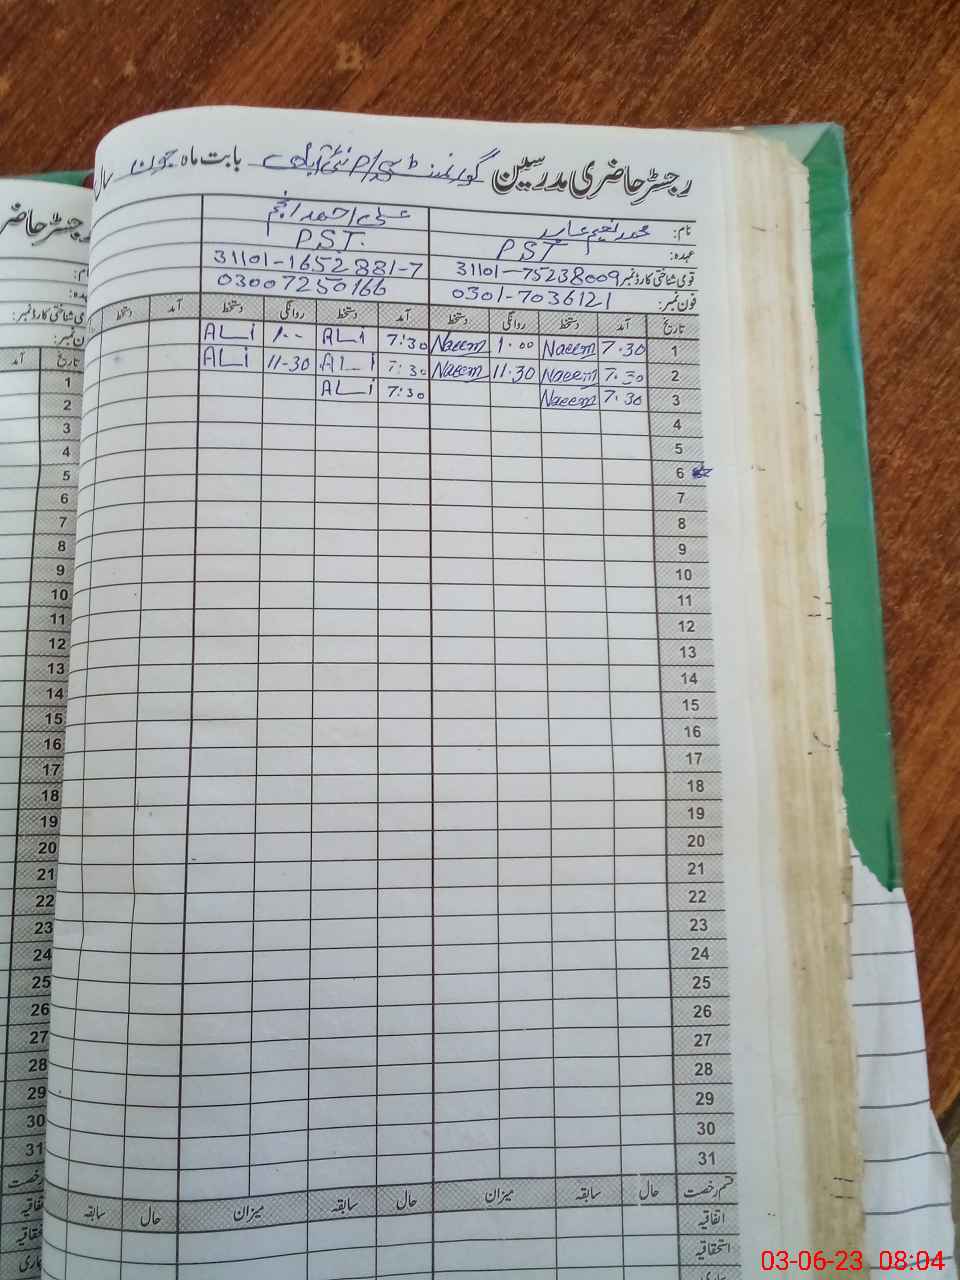 رجسٹر حاضری مدرسین گورنمنٹ بابت ماہ جون
نام: محمد نعیم عابد علی احمد انجم
عہدہ: PST P.S.T.
قومی شناختی کارڈ نمبر 31101-75238009 31101-1652881-7
فون نمبر: 0301-7036121 03007250166
تاریخ آمد دستخط روانگی دستخط آمد دستخط روانگی دستخط آمد دستخط
1 7.30 Naeem 1.00 Naeem 7:30 ALi 1-- ALi
2 7.30 Naeem 11.30 Naeem 7:30 ALi 11-30 ALi
3 7.30 Naeem 7:30 ALi
4
5
6
7
8
9
10
11
12
13
14
15
16
17
18
19
20
21
22
23
24
25
26
27
28
29
30
31
قسم رخصت حال سابقہ میزان حال سابقہ میزان حال سابقہ
اتفاقیہ
استحقاقیہ
رجسٹر حاضر
تاریخ آمد
1
2
3
4
5
6
7
8
9
10
11
12
13
14
15
16
17
18
19
20
21
22
23
24
25
26
27
28
29
30
31
03-06-23 08:04